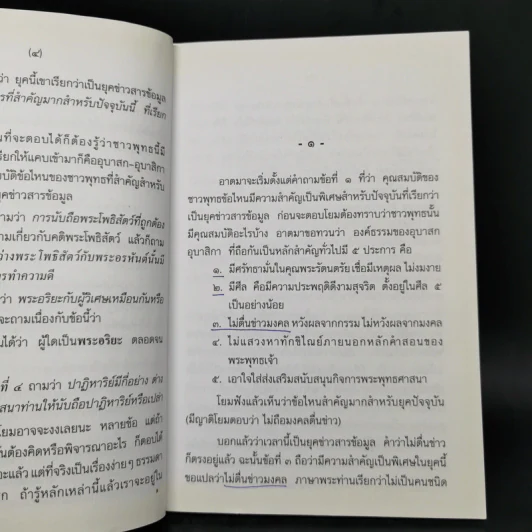 (๔)
ว่า ยุคนี้เขาเรียกว่าเป็นยุคข่าวสารข้อมูล
รที่สำคัญมากสำหรับปัจจุบันนี้ ที่เรียก
นที่จะตอบได้ก็ต้องรู้ว่าชาวพุทธนี้มี
รียกให้แคบเข้ามาก็คืออุบาสก-อุบาสิกา
บัติข้อไหนของชาวพุทธที่สำคัญสำหรับ
ยุคข่าวสารข้อมูล
ถามว่า การนับถือพระโพธิสัตว์ที่ถูกต้อง
ามเกี่ยวกับคติพระโพธิสัตว์ แล้วก็ถาม
ว่างพระโพธิสัตว์กับพระอรหันต์นั้นมี
การทำความดี
ว่า พระอริยะกับผู้วิเศษเหมือนกันหรือ
จะถามเนื่องกับข้อนี้ว่า
นได้ว่า ผู้ใดเป็นพระอริยะ ตลอดจน
ที่ ๔ ถามว่า ปาฏิหาริย์มีกี่อย่าง ต่าง
สนาท่านให้นับถือปาฏิหาริย์หรือเปล่า
โยมอาจจะงงเลยนะ หลายข้อ แต่ถ้า
นต้องคิดหรือพิจารณาอะไร ก็ตอบได้
อะแล้ว แต่ที่จริงเป็นเรื่องง่ายๆ ธรรมดา
ก ถ้ารู้หลักเหล่านี้แล้วเราจะอยู่ใน
- ๑ -
อาตมาจะเริ่มตั้งแต่คำถามข้อที่ ๑ ที่ว่า คุณสมบัติของ
ชาวพุทธข้อไหนมีความสำคัญเป็นพิเศษสำหรับปัจจุบันที่เรียกว่า
เป็นยุคข่าวสารข้อมูล ก่อนจะตอบโยมต้องทราบว่าชาวพุทธนั้น
มีคุณสมบัติอะไรบ้าง อาตมาขอทวนว่า องค์ธรรมของอุบาสก
อุบาสิกา ที่ถือกันเป็นหลักสำคัญทั่วไปมี ๕ ประการ คือ
๑. มีศรัทธามั่นในคุณพระรัตนตรัย เชื่อมีเหตุผล ไม่งมงาย
๒. มีศีล คือมีความประพฤติดีงามสุจริต ตั้งอยู่ในศีล ๕
เป็นอย่างน้อย
๓. ไม่ตื่นข่าวมงคล หวังผลจากกรรม ไม่หวังผลจากมงคล
๔. ไม่แสวงหาทักขิไณย์ภายนอกหลักคำสอนของ
พระพุทธเจ้า
๕. เอาใจใส่ส่งเสริมสนับสนุนกิจการพระพุทธศาสนา
โยมฟังแล้วเห็นว่าข้อไหนสำคัญมากสำหรับยุคปัจจุบัน
(มีญาติโยมตอบว่า ไม่ถือมงคลตื่นข่าว)
บอกแล้วว่าเวลานี้เป็นยุคข่าวสารข้อมูล คำว่าไม่ตื่นข่าว
ก็ตรงอยู่แล้ว ฉะนั้นข้อที่ ๓ ถือว่ามีความสำคัญเป็นพิเศษในยุคนี้
ขอแปลว่าไม่ตื่นข่าวมงคล ภาษาพระท่านเรียกว่าไม่เป็นคนชนิด